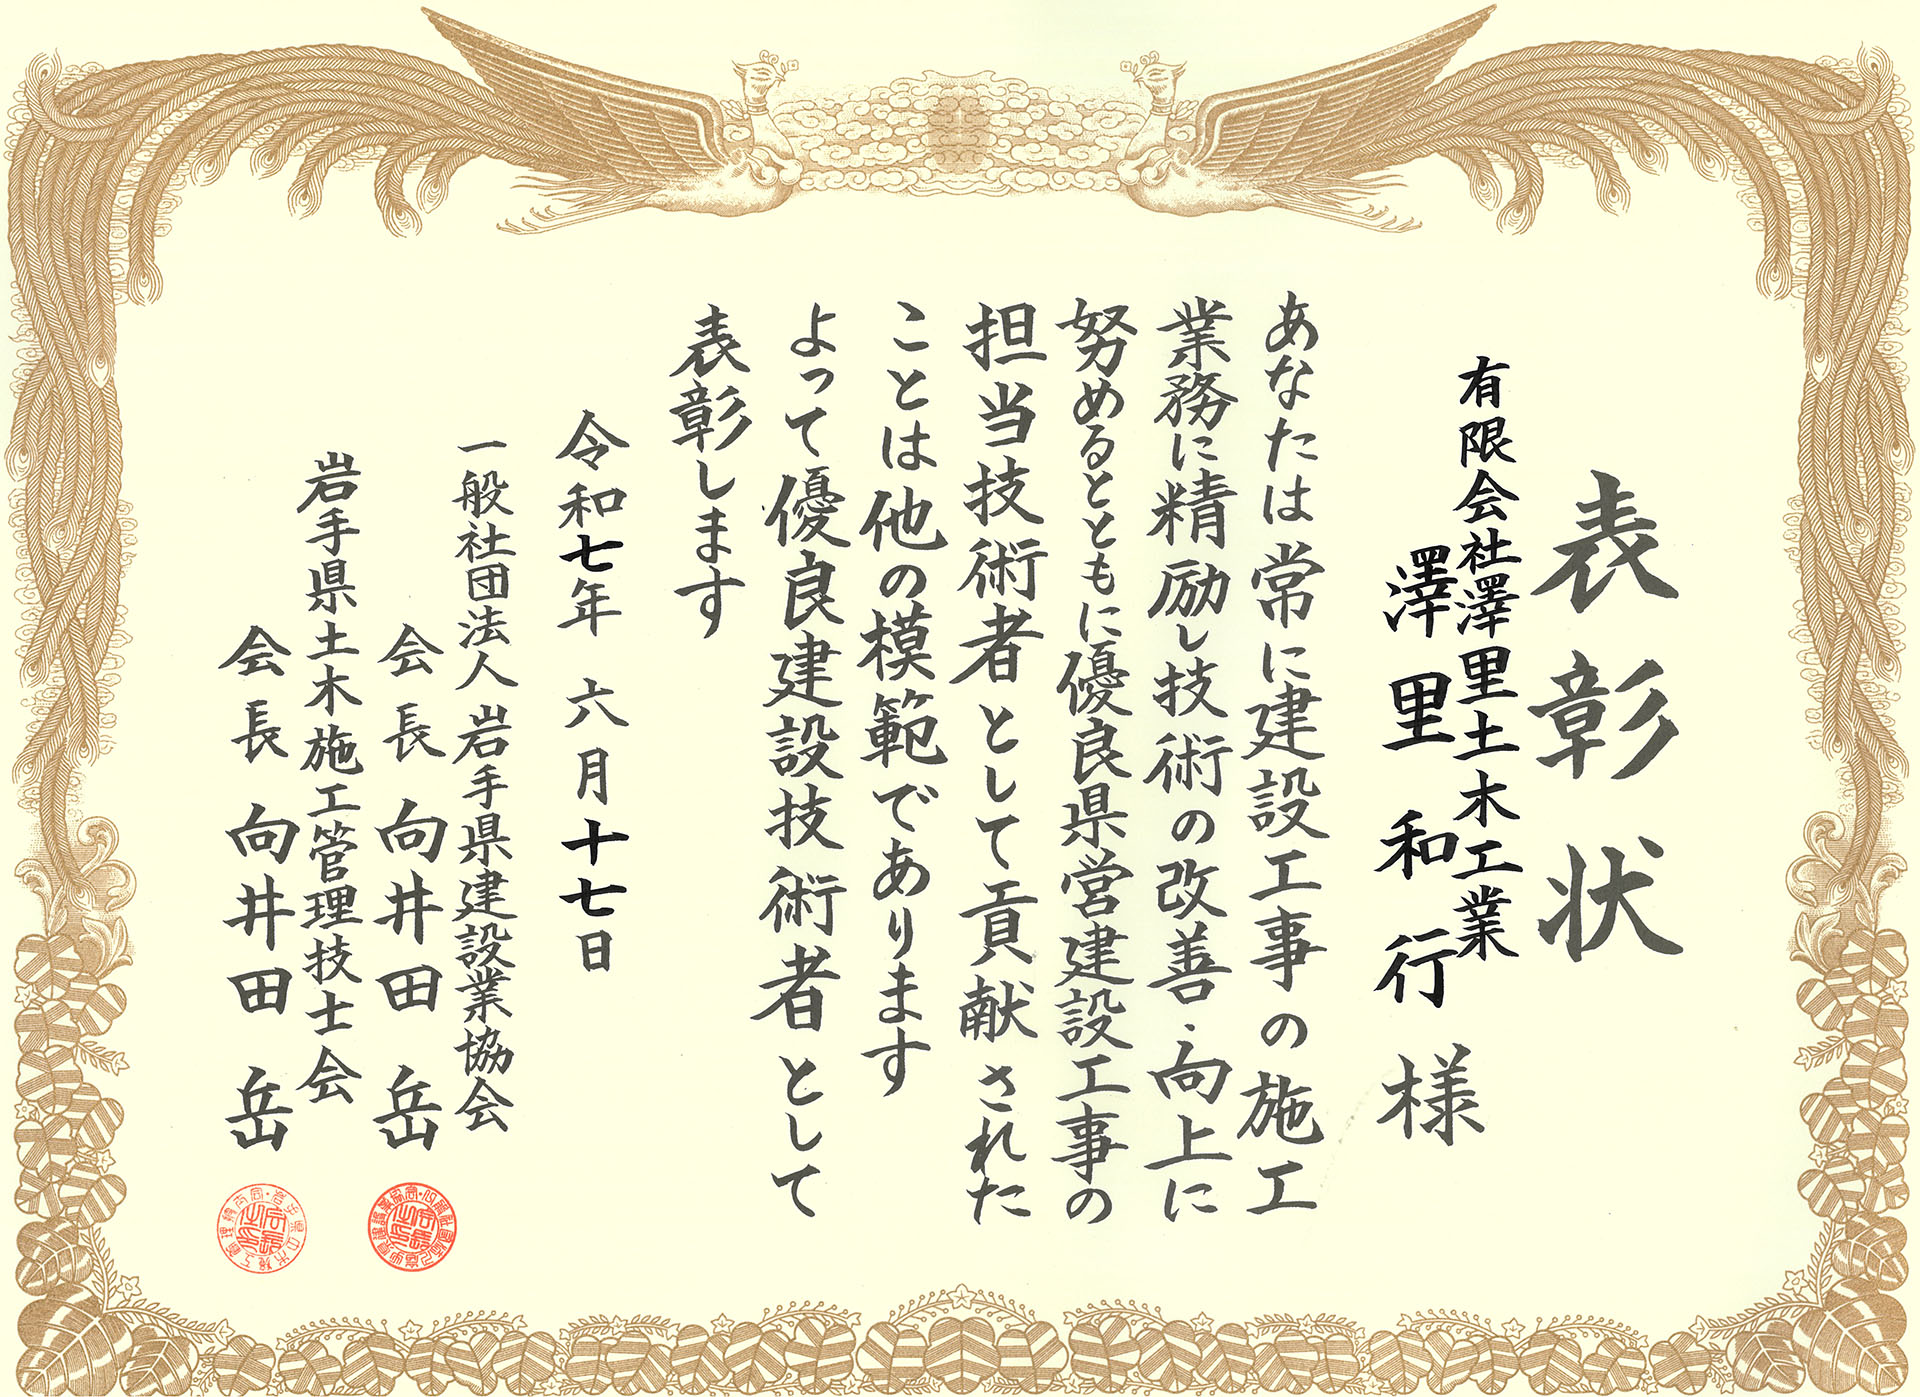 表彰状
有限会社澤里土木工業
澤里和行様
あなたは常に建設工事の施工
業務に精励し技術の改善・向上に
努めるとともに優良県営建設工事の
担当技術者として貢献された
ことは他の模範であります
よって優良建設技術者として
表彰します
令和七年六月十七日
一般社団法人岩手県建設業協会
会長向井田岳
岩手県土木施工管理技士会
会長向井田岳